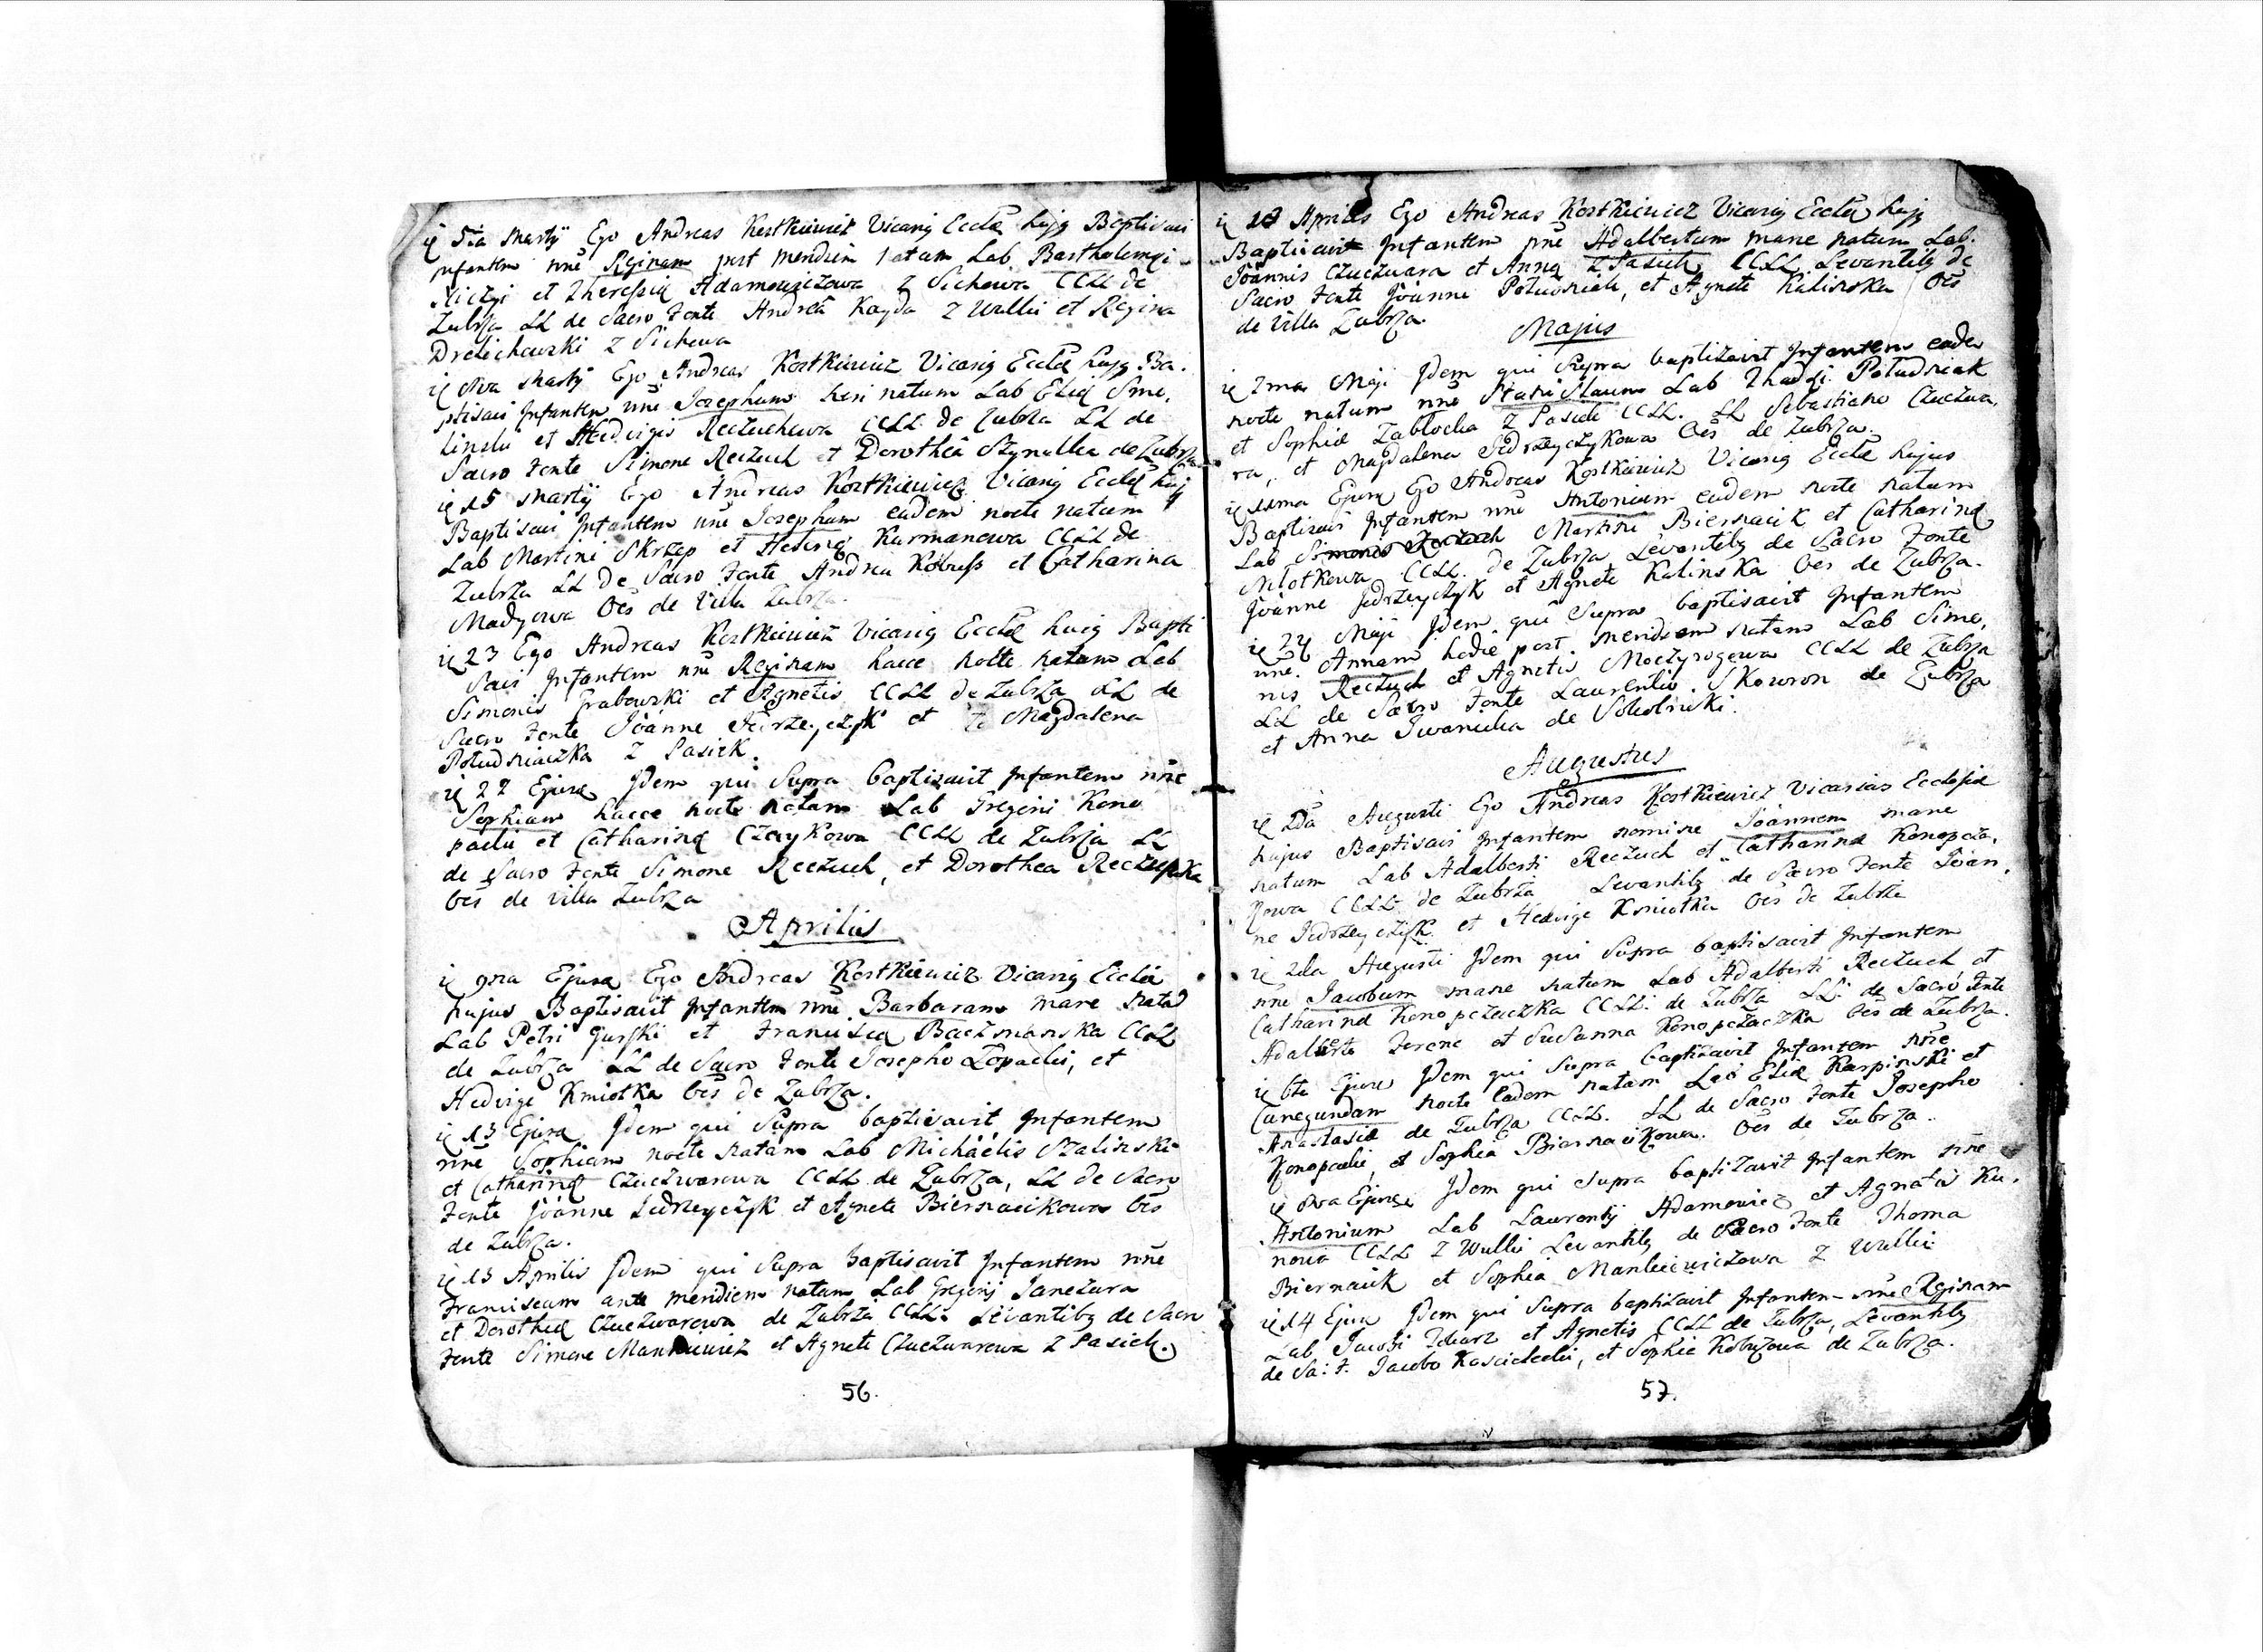 5ta Martÿ Ego Andreas Kostkiewicz Vicariq Eccłæ hujq Baptisavi
Infantem nñe Reginam post meridiem natam Lab Bartholomæi
et Theressiæ Adamowiczowa z Sichowa CCLL de
Zubrza LL de Sacro Fonte Andrea Kayda z Wulki et Regina
Drelichowski z Sichowa
8va Martÿ Ego Andreas Kostkiewicz Vicariq Eccłæ hujq Ba-
ptisavi Infantem nñe Josephum heri natum Lab Eliæ Sme,
linski et Hedvigis Reczuchowa CCLL de Zubrza LL de
Sacro Fonte Simone Reczuch et Dorothea Szynalka de Zubrza
15 Martÿ Ego Andreas Kostkiewicz Vicariq Eccłæ huj
Baptisavi Infantem nñe Josephum eadem nocte natum
Lab Martini Skrzep et Helenæ Kurmanowa CCLL de
Zubrza LL de Sacro Fonte Andrea Kobuss et Catharina
Madzowa Oẽs de Villa Zubrza.
23 Ego Andreas Kostkiewicz Vicariq Eccłæ hujq Bapti
savi Infantem nñe Reginam hacce nocte natam Lab
Simonis Grabowski et Agnetis CCLL de Zubrza LL de
Sacro Fonte Joanne Jedrzeyczyk et Magdalena
Poludniaczka z Pasiek.
27 Ejusq Idem qui Supra baptisavit Infantem nñe
Sophiam hacce nocte natam Lab Gregorii Kono
packi et Catharinæ Czaykowa CCLL de Zubrza LL
de Sacro Fonte Simone Reczuch, et Dorothea Reczuchka
Oẽs de Villa Zubrza
Aprilis
9na Ejusq Ego Andreas Kostkiewicz Vicariq Eccłæ
hujus Baptisavit Infantem nñe Barbaram mane nata
Lab Petri Gurski et Franciscæ Baczmanska CCLL
de Zubrza LL de Sacro Fonte Josepho Lopacki, et
Hedvige Kmiotka Oẽs de Zubrza.
13 Ejusq Idem qui Supra baptisavit Infantem
nñe Sophiam nocte natam Lab Michaelis Szalinski
et Catharinæ Czuczwarowa CCLL de Zubrza, LL de Sacro
Fonte Joanne Jedrzeyczyk et Agnete Biernacikowa Oẽs
de Zubrza.
13 Aprilis Idem qui Supra baptisavit Infantem nñe
Franciscum ante meridiem natum Lab Gregorij Janczura
et Dorotheæ Czuczwarowa de Zubrza CCLL. Levantibq de Sacro
Fonte Simone Mankiewicz et Agnete Czuczwarowa z Pasiek.
56.
18 Aprilis Ego Andreas Kostkiewicz Vicariq Eccłæ hujq
Baptisavit Infantem nñe Adalbertum mane natum Lab.
Joannis Czuczwara et Annæ z Pasiek CCLL Levantibq de
Sacro Fonte Joanne Poludniak, et Agnete Kalinska Oẽs
de Villa Zubrza.
Majus
7ma Maji Idem qui Supra baptizavit Infantem eade
nocte natum nñe Stanislaum Lab Thadæi Poludniak
et Sophiæ Zablocka z Pasiek CCLL. LL Sebastiano Czuczwa,
ra, et Magdalena Jedrzeyczykowa Oẽs de Zubrza.
11ma Ejusq Ego Andreas Kostkiewicz Vicariq Eccłæ hujus
Baptisavi Infantem nñe Antonium eadem nocte natum
Lab Simonis Reczuch Martini Biernacik et Catharinæ
Mlotkowa CCLL. de Zubrza Levantibq de Sacro Fonte
Joanne Jedrzeyczyk et Agnete Kalinska Oẽs de Zubrza.
24 Maji Idem qui Supra baptisavit Infantem
nñe. Annam hodie post meridiem natam Lab Simo,
nis Reczuch et Agnetis Moczyrogowa CCLL de Zubrza
LL de Sacro Fonte Laurentio Skowron de Zubrza
et Anna Iwanicka de Sokolniki.
Augustus
2da Augusti Ego Andreas Kostkiewicz Vicarius Ecclesiæ
hujus Baptisavi Infantem nomine Joannem mane
natum Lab Adalberti Reczuch et Catharinæ Konopcza,
kowa CCLL de Zubrza Levantibq de Sacro Fonte Joan,
ne Jedrzeyczyk et Hedvige Kmiotka Oẽs de Zubrza
2da Augusti Idem qui Supra baptisavit Infantem
nñe Jacobum mane natum Lab Adalberti Reczuch et
Catharinæ Konopczaczka CCLL. de Zubrza LL. de Sacro Fonte
Adalberto Ferenc et Susanna Konopczaczka Oẽs de Zubrza.
6ta Ejus Idem qui Supra baptizavit Infantem nñe
Cunegundam nocte eadem natam Lab Eliæ Karpinski et
Anastasiæ de Zubrza CCLL. LL de Sacro Fonte Josepho
Konopacki, et Sophia Biernacikowa. Oẽs de Zubrza.
8va Ejusq Idem qui Supra baptizavit Infantem nñe
Antonium Lab Laurentij Adamowicz et Agnetis Ku,
nowa CCLL z Wulki Levantibq de Sacro Fonte Thoma
Biernacik et Sophia Mankiewiczowa z Wulki
14 Ejus Idem qui Supra baptizavit Infantem nñe Reginam
Lab Jacobi Tokarz et Agnetis CCLL de Zubrza, Levantibq
de Sa: F. Jacobo Koscielecki, et Sophia Kobuzowa de Zubrza.
57.